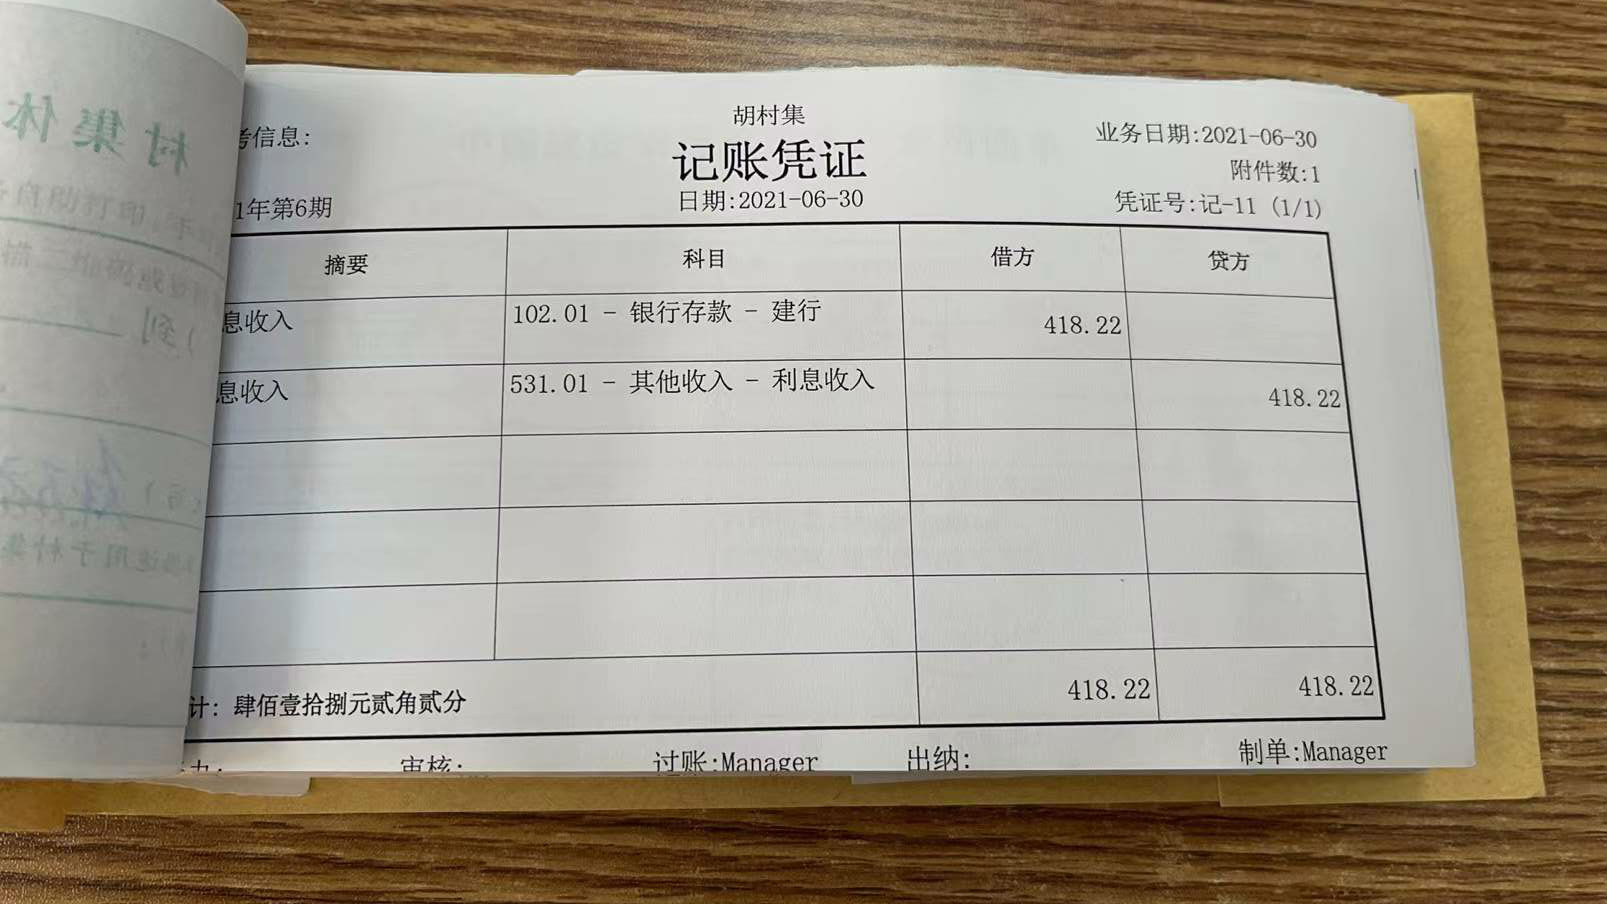 胡村集
考信息:
记账凭证
业务日期:2021-06-30
附件数:1
1年第6期
日期:2021-06-30
凭证号:记-11 (1/1)
摘要 科目 借方 贷方
息收入 102.01 - 银行存款 - 建行 418.22
息收入 531.01 - 其他收入 - 利息收入 418.22
计: 肆佰壹拾捌元贰角贰分 418.22 418.22
审核: 过账:Manager 出纳: 制单:Manager
村集体